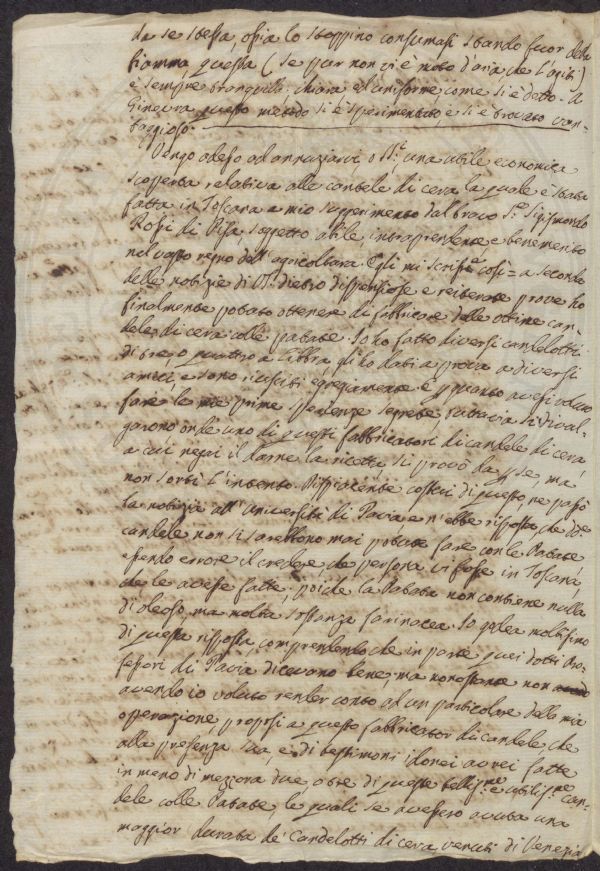 da se stessa, ossia lo stoppino consumasi stando fuor della
fiamma, questa (se pur non vi è moto d'aria che l'agiti)
è sempre tranquilla, chiara ed uniforme, come si è detto. A
Ginevra questo metodo si è sperimentato, e si è trovato van-
taggioso.
Vengo adesso ad annuziarvi, o Sig.e, una utile economica
scoperta relativa alle candele di cera la quale è stata
fatta in Toscana a mio suggerimento dal bravo S.r Sigismondo
Rossi di Pisa soggetto abile, intraprendente e benemerito
nel vasto regno dell'agricoltura. Egli mi scrisse così = a seconda
delle notizie di dietro dispendiose e reiterate prove ho
finalmente potuto ottenere di fabbricare delle ottime can-
dele di cera colle patate. Io ho fatto diversi candelotti
di tre, o quattro a libbra, gli ho dati a prova a diversi
amici, e sono riusciti egregiamente. E quanto avessi voluto
fare le mie prime sperienze segrete, tuttavia si dival-
garono onde uno di questi fabbricatori di candele di cera
a cui negai il darne la ricetta si provò da se, ma
non sortì l'intento. Dispiacente costui di questo, ne passò
la notizia all'Università di Pavia e n'ebbe risposta, che d.e
candele non si sarebbono mai potute fare con le Patate
essendo errore il credere, che persona vi fosse in Toscana,
che le avesse fatte; poiche la Patata non contiene nulla
di oleoso, ma molta sostanza farinacea. Io godea moltissimo
di questa risposta, comprendendo che in parte quei dotti Pro-
fessori di Pavia dicevano bene, ma nonostante non
avendo io voluto render conto ad un particolare della mia
operazione, proposi a questo fabbricator di candele, che
alla presenza sua, e di testimonj idonei avrei fatte
in meno di mezzora due, o tre di queste bellissime e utilissime can-
dele colle Patate, le quali se avessero avuta una
maggior durata de' Candelotti di cera venuti di Venezia